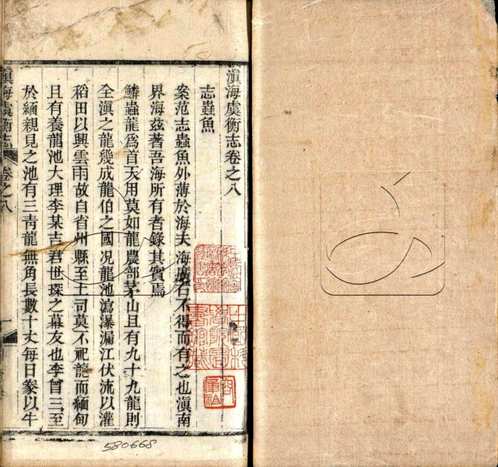 滇海虞衡志卷之八
志蟲魚
案范志蟲魚外薄於海夫海廣石不得而有之也滇南
界海茲著吾海所有者錄其實焉
鱗蟲龍爲首天用莫如龍農部茅山且有九十九龍則
全滇之龍幾成龍伯之國況龍池瀉瀑漏江伏流以灌
稻田以興雲雨故自省州縣至土司莫不祀龍而緬甸
且有養龍池大理李某吉君世琛之幕友也李曾三至
於緬親見之池有三靑龍無角長數十丈每日豢以牛
滇海虞衡志
卷之八
一
580668